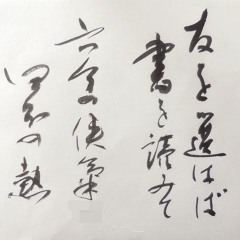 友を選はば
書を読みて
六分の侠氣
四分の熱